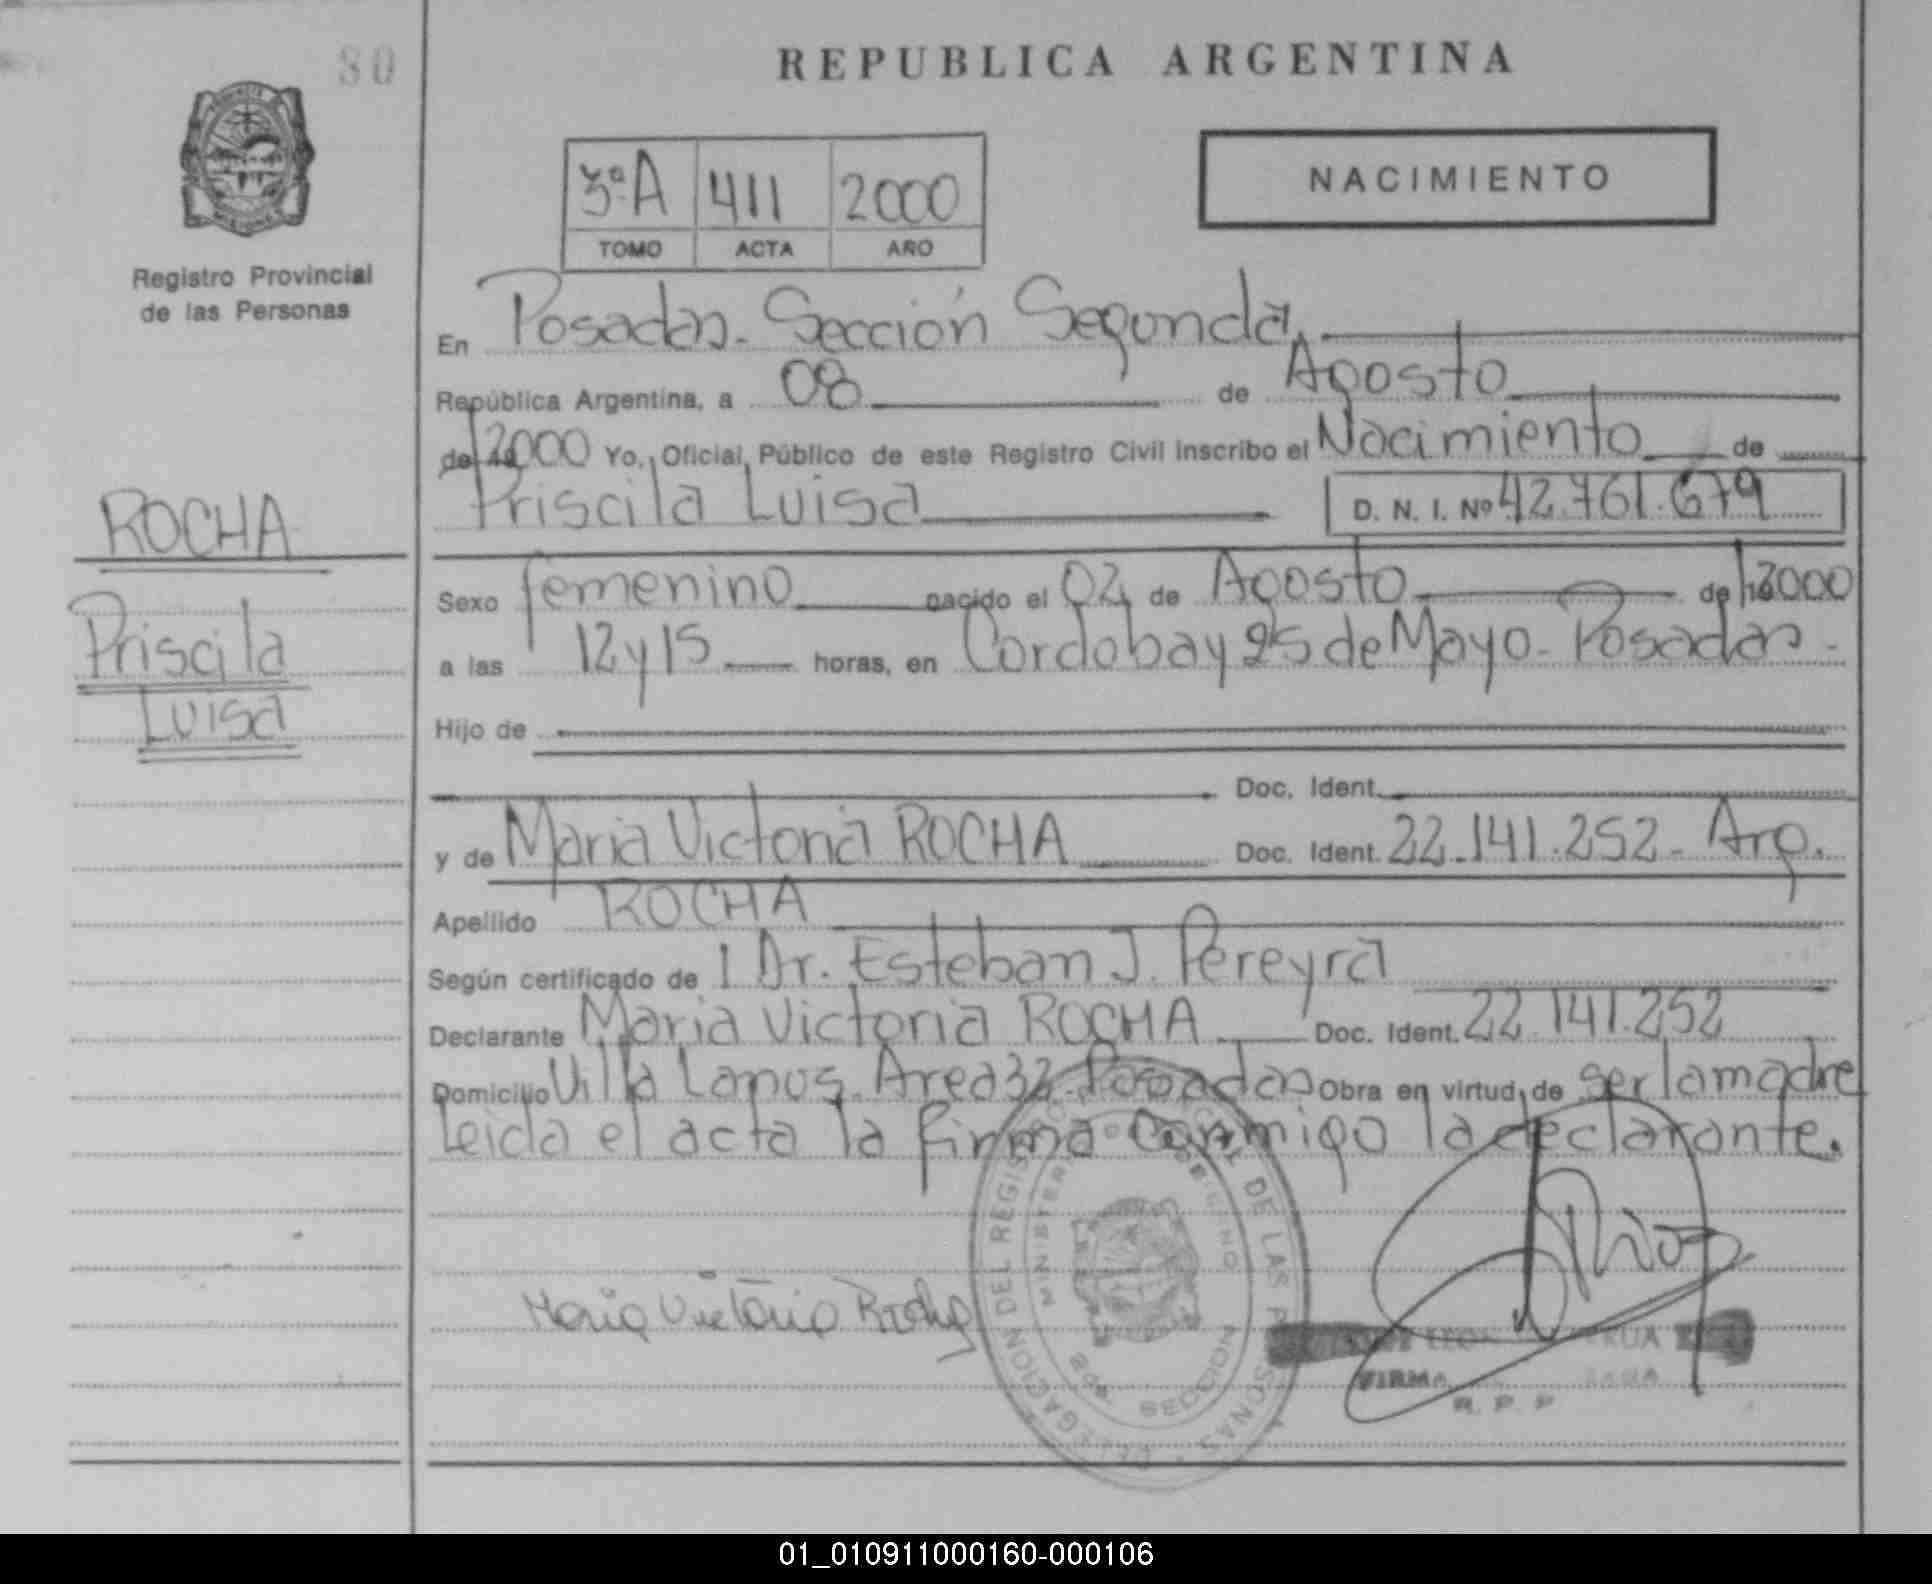 80
REPUBLICA ARGENTINA
NACIMIENTO
3ºA 411 2000
TOMO ACTA AÑO
Registro Provincial
de las Personas
En Posadas. Sección Segunda
República Argentina, a 08 de Agosto
de 2000 Yo, Oficial Público de este Registro Civil inscribo el Nacimiento de
Priscila Luisa D. N. I. Nº 42.761.679
ROCHA
Priscila
Luisa
Sexo femenino nacido el 02 de Agosto de 2000
a las 12 y 15 horas, en Cordoba y 25 de Mayo - Posadas -
Hijo de
Doc. Ident.
y de Maria Victoria ROCHA Doc. Ident. 22.141.252 - Arg.
Apellido ROCHA
Según certificado de Dr. Esteban J. Pereyra
Declarante Maria Victoria ROCHA Doc. Ident. 22.141.252
Domicilio Villa Lanus. Area 32 - Posadas Obra en virtud de ser la madre
Leida el acta la firma conmigo la declarante.
Maria Victoria Rocha
DELEGACION DEL REGISTRO DE LAS PERSONAS
MINISTERIO DE GOBIERNO
2da. SECCION
FIRMA
R. P. P
01_010911000160-000106